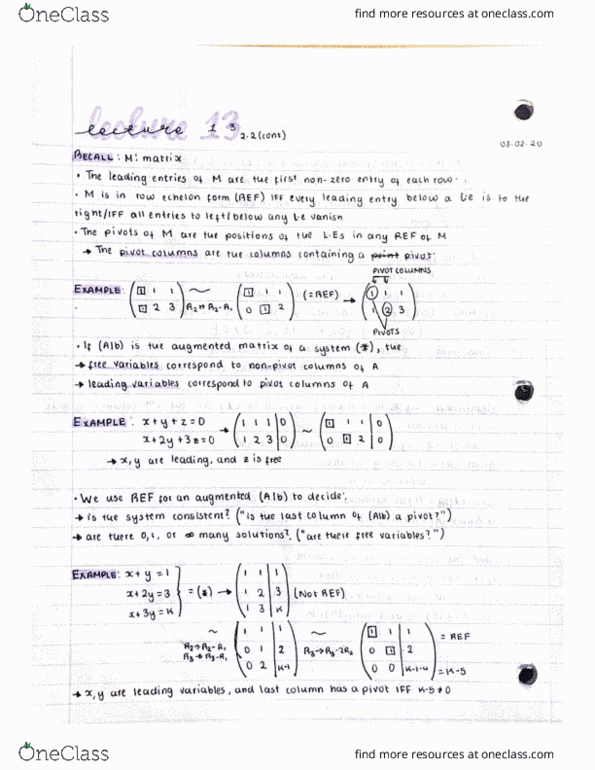 OneClass
find more resources at oneclass.com
lecture 13
lecture 13 2.2 (cont)
03-02-20
RECALL: M: matrix
• The leading entries of M are the first non-zero entry of each row.
• M is in row echelon form (REF) IFF every leading entry below a L.e is to the
right/IFF all entries to left/below any L.e vanish
• The pivots of M are the positions of the L.Es in any REF of M
→ The pivot columns are the columns containing a point pivot.
PIVOT COLUMNS
EXAMPLE: (1 1 1 / 1 2 3) R2→R2-R1 ~ (1 1 1 / 0 1 2) (=REF) → (1 1 1 / 1 2 3)
PIVOTS
• If (A|b) is the augmented matrix of a system (*), the
→ free variables correspond to non-pivot columns of A
→ leading variables correspond to pivot columns of A
EXAMPLE: x+y+z=0 → (1 1 1 | 0) ~ (1 1 1 | 0)
x+2y+3z=0 (1 2 3 | 0) (0 1 2 | 0)
→ x,y are leading, and z is free
• We use REF for an augmented (A|b) to decide:
→ is the system consistent? ("is the last column of (A|b) a pivot?")
→ are there 0,1, or ∞ many solutions?, ("are there free variables?")
EXAMPLE: x+y=1
x+2y=3
x+3y=K
} = (*) → (1 1 | 1 / 1 2 | 3 / 1 3 | K) (Not REF)
~ R2→R2-R1 R3→R3-R1 (1 1 | 1 / 0 1 | 2 / 0 2 | K-1) ~ R3→R3-2R2 (1 1 | 1 / 0 1 | 2 / 0 0 | K-1-4) = REF = K-5
→ x,y are leading variables, and last column has a pivot IFF K-5≠0
OneClass
find more resources at oneclass.com